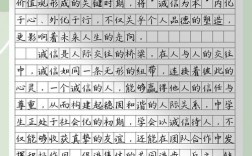 价值观形成的关键时期,将“诚信为本”内化
于心、外化于行,不仅关乎个人品德的塑造,
更影响着未来人生的走向。
诚信是人际交往的桥梁,在人与人的交往
中,诚信如同一条无形的纽带,连接着彼此的
心灵,一个诚信的人,能够赢得他人的信任与
尊重,从而构建起稳固和谐的人际关系,中学
生正处于社会化的初期,学会以诚信待人,不
仅能够收获真挚的友谊,还能在团队合作中发